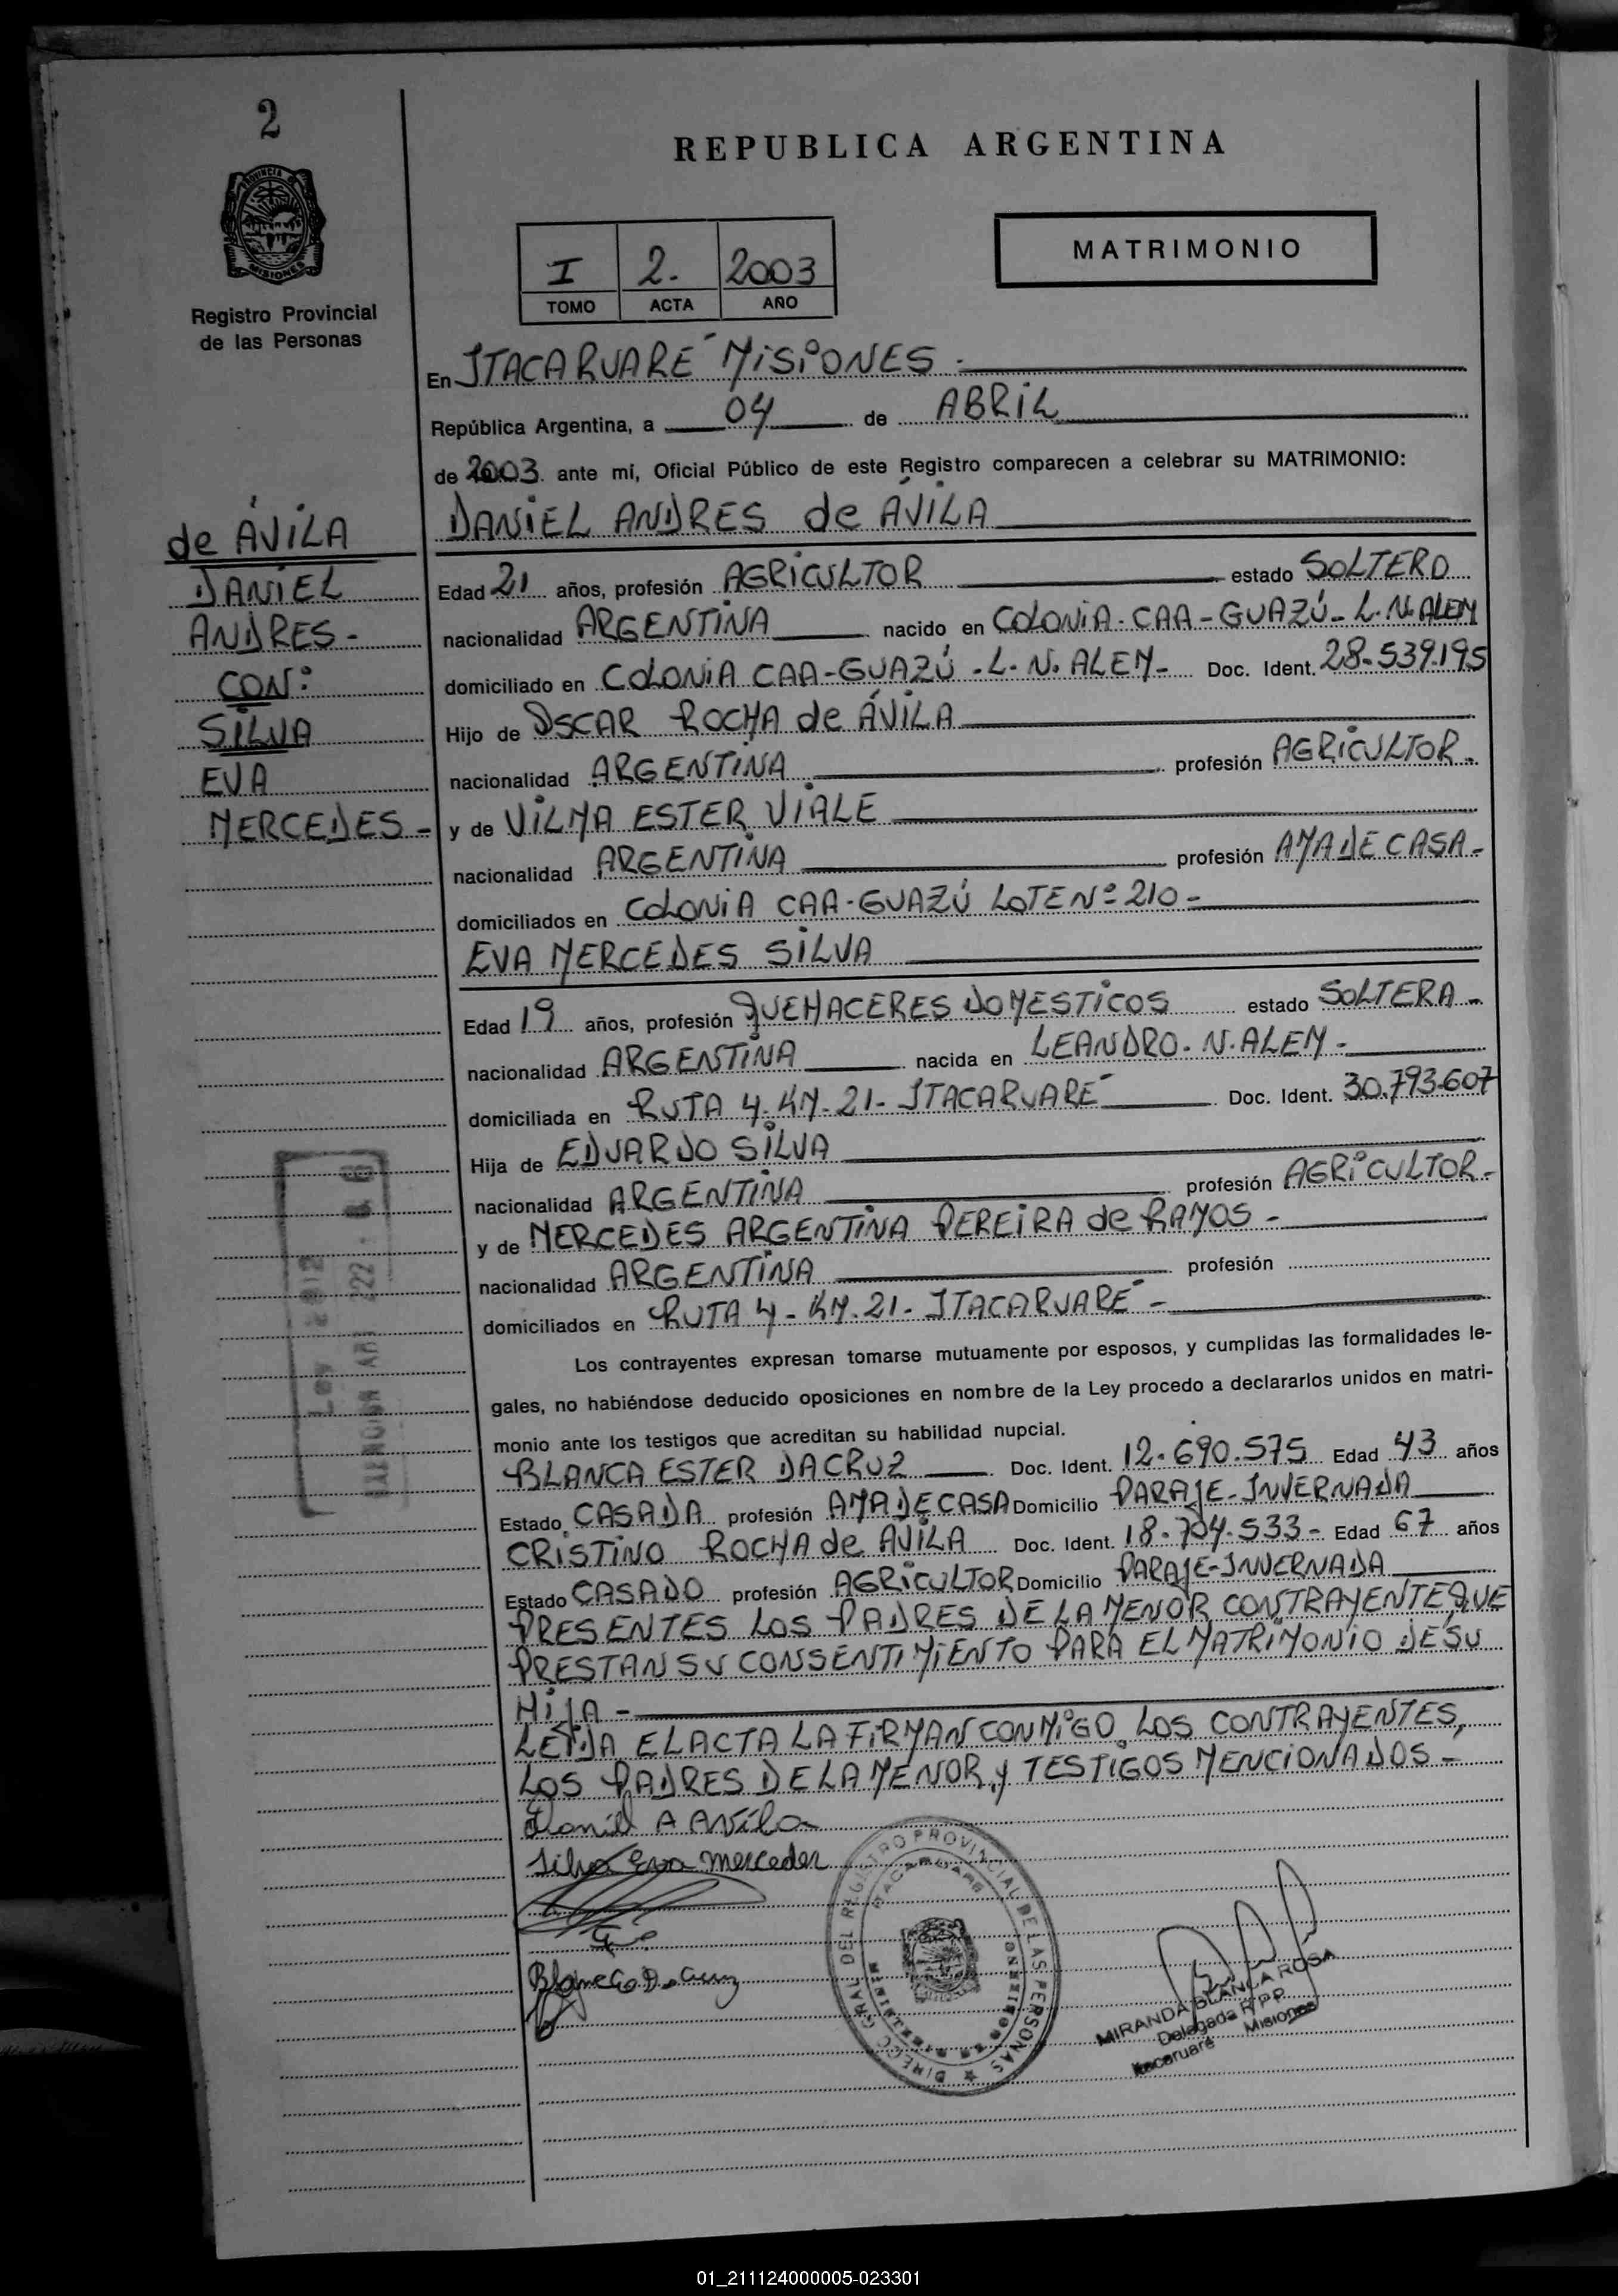 2
PROVINCIA DE
MISIONES
Registro Provincial
de las Personas
REPUBLICA ARGENTINA
I 2. 2003
TOMO ACTA AÑO
MATRIMONIO
En ITACARUARÉ MISIONES -
República Argentina, a 04 de ABRIL
de 2003. ante mi, Oficial Público de este Registro comparecen a celebrar su MATRIMONIO:
DANIEL ANDRES de ÁVILA
de ÁVILA
DANIEL
ANDRES -
CON:
SILVA
EVA
MERCEDES -
Edad 21 años, profesión AGRICULTOR estado SOLTERO
nacionalidad ARGENTINA nacido en COLONIA - CAA - GUAZÚ - L. N. ALEM
domiciliado en COLONIA CAA-GUAZÚ - L. N. ALEM - Doc. Ident. 28.539.195
Hijo de OSCAR ROCHA de ÁVILA
nacionalidad ARGENTINA profesión AGRICULTOR -
y de VILMA ESTER VIALE
nacionalidad ARGENTINA profesión AMA DE CASA -
domiciliados en COLONIA CAA-GUAZÚ LOTE Nº 210 -
EVA MERCEDES SILVA
Edad 19 años, profesión QUEHACERES DOMESTICOS estado SOLTERA -
nacionalidad ARGENTINA nacida en LEANDRO. N. ALEM -
domiciliada en RUTA 4 - KM - 21 - ITACARUARÉ Doc. Ident. 30.793.607
Hija de EDUARDO SILVA
nacionalidad ARGENTINA profesión AGRICULTOR -
y de MERCEDES ARGENTINA PEREIRA de RAMOS -
nacionalidad ARGENTINA profesión
domiciliados en RUTA 4 - KM. 21 - ITACARUARÉ -
Los contrayentes expresan tomarse mutuamente por esposos, y cumplidas las formalidades le-
gales, no habiéndose deducido oposiciones en nombre de la Ley procedo a declararlos unidos en matri-
monio ante los testigos que acreditan su habilidad nupcial.
BLANCA ESTER DACRUZ Doc. Ident. 12.690.575 Edad 43 años
Estado CASADA profesión AMA DE CASA Domicilio PARAJE - INVERNADA
CRISTINO ROCHA de AVILA Doc. Ident. 18.704.533 - Edad 67 años
Estado CASADO profesión AGRICULTOR Domicilio PARAJE - INVERNADA
PRESENTES LOS PADRES DE LA MENOR CONTRAYENTE QUE
PRESTAN SU CONSENTIMIENTO PARA EL MATRIMONIO DE SU
HIJA -
LEIDA EL ACTA LA FIRMAN CONMIGO LOS CONTRAYENTES,
LOS PADRES DE LA MENOR, y TESTIGOS MENCIONADOS -
Daniel A Avila
Silva Eva Mercedes
DIRECC. GRAL. DEL REGISTRO PROVINCIAL DE LAS PERSONAS
ITACARUARE
MISIONES
MIRANDA BLANCA ROSA
Delegada R P P
Itacaruaré Misiones
01_211124000005-023301